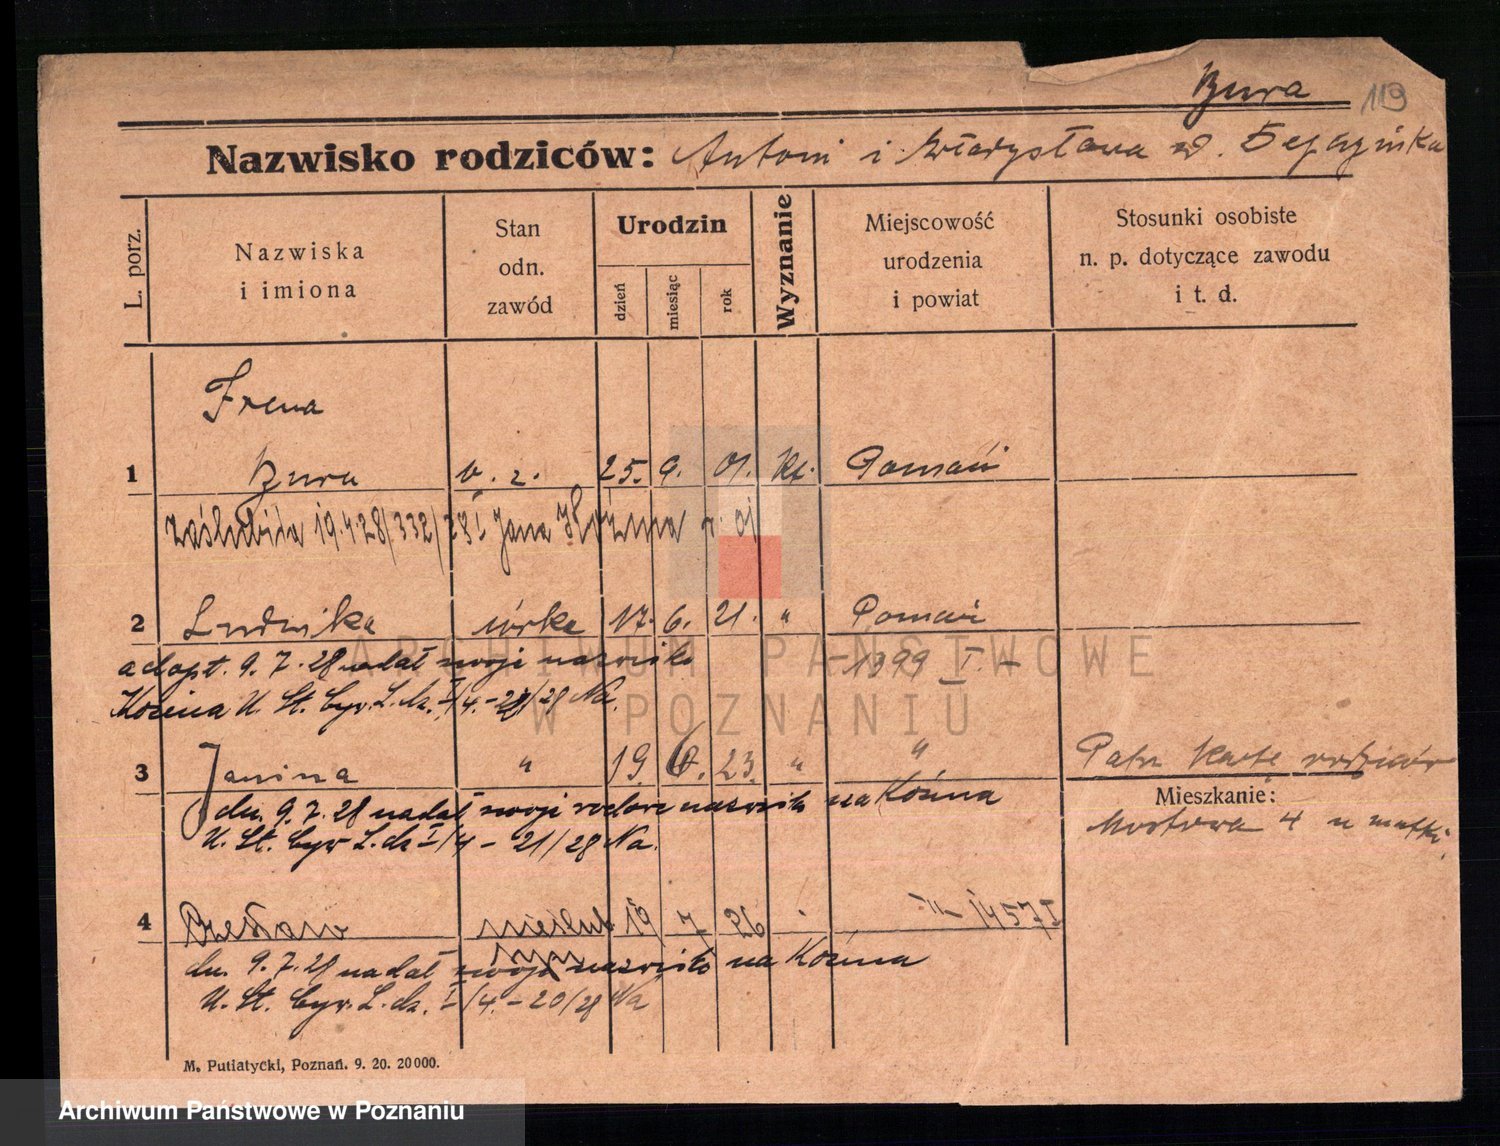 Bzura 119
Nazwisko rodziców: Antoni i Władysława z d.
L. porz.
Nazwiska i imiona
Stan odn. zawód
Urodzin
dzień
miesiąc
rok
Wyznanie
Miejscowość urodzenia i powiat
Stosunki osobiste n. p. dotyczące zawodu i t. d.
Irena
1 Bzura n. z. 25. 9. 01. kt. Poznań
zaślubiła 19.4.28/332/28 I Jana r. 01
2 Ludwika córka 17. 6. 21. " Poznań
adopt. 9. 7. 28 nadał swoje nazwisko -1399 I.-
Koźma U. St. Cyw. L. dz. I/4.-28/28 Na.
3 Janina " 19 6. 23. " "
Patrz kartę rodziców
dn. 9. 7. 28 nadał swoje nazwisko na Koźma
Mieszkanie:
U. St. Cyw L. dz I/4 - 21/28 Na.
Mostowa 4 u matki.
4 Czesław nieślub. syn 19 7 26 -"- 1457 I
dn. 9. 7. 28 nadał swoje nazwisko na Koźma
U. St. Cyw. L. dz. I/4. - 20/28 Na
M. Putiatycki, Poznań. 9. 20. 20000.
ARCHIWUM PAŃSTWOWE
W POZNANIU
Archiwum Państwowe w Poznaniu